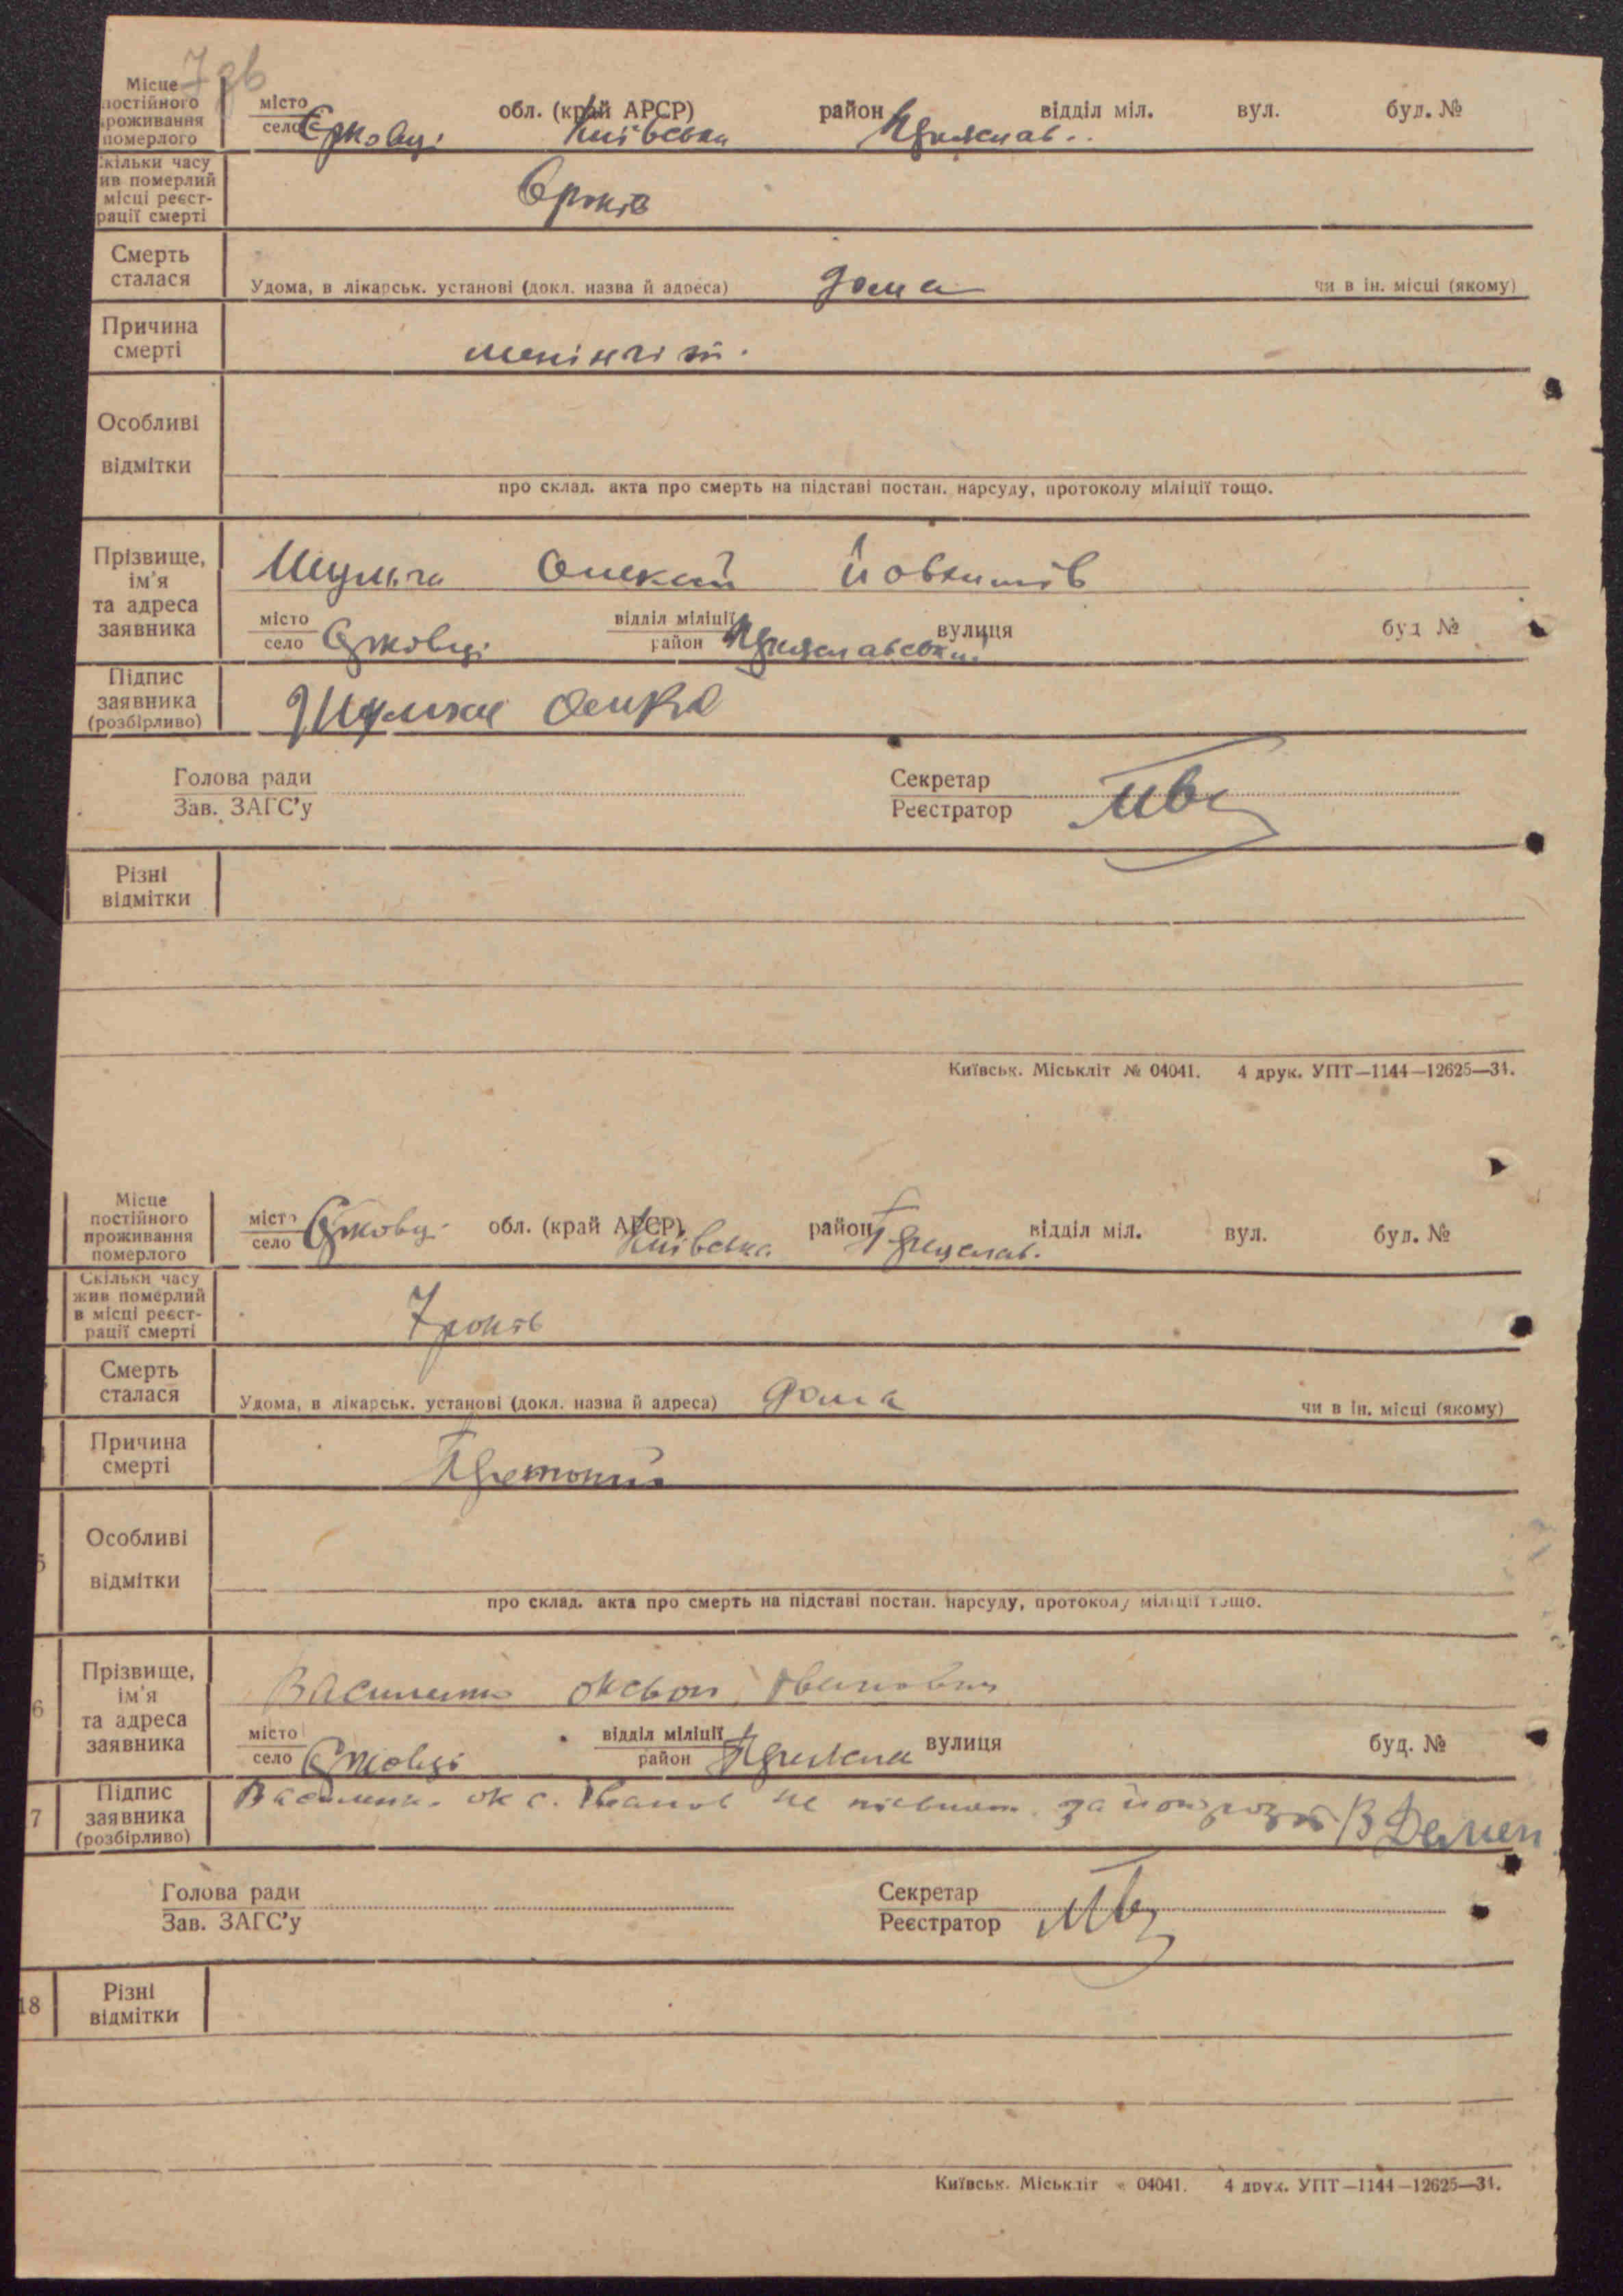 7 зв
Місце
постійного
проживання
померлого
місто
село Єрковці обл. (край АРСР) Київська район Переяслав. відділ міл. вул. буд. №
Скільки часу
жив померлий
місці реєст-
рації смерті
6 років
Смерть
сталася
Удома, в лікарськ. установі (докл. назва й адреса) дома чи в ін. місці (якому)
Причина
смерті
менінгіт.
Особливі
відмітки
про склад. акта про смерть на підставі постан. нарсуду, протоколу міліції тощо.
Прізвище,
ім'я
та адреса
заявника
Шульга Олекс
місто
село Єрковці
відділ міліції
район Переяславський вулиця буд №
Підпис
заявника
(розбірливо)
Шульга
Голова ради
Зав. ЗАГС'у
Секретар
Реєстратор
Різні
відмітки
Київськ. Міськліт № 04041. 4 друк. УПТ—1144—12625—34.
Місце
постійного
проживання
померлого
місто
село Єрковці обл. (край АРСР) Київська район Переяслав. відділ міл. вул. буд. №
Скільки часу
жив померлий
в місці реєст-
рації смерті
7 років
Смерть
сталася
Удома, в лікарськ. установі (докл. назва й адреса) дома чи в ін. місці (якому)
Причина
смерті
Особливі
відмітки
про склад. акта про смерть на підставі постан. нарсуду, протоколу міліції тощо.
6
Прізвище,
ім'я
та адреса
заявника
Василенко
місто
село Єрковці
відділ міліції
район вулиця буд. №
7
Підпис
заявника
(розбірливо)
Василенко Ок с. Іванов не
Голова ради
Зав. ЗАГС'у
Секретар
Реєстратор
18
Різні
відмітки
Київськ. Міськліт 04041. 4 друк. УПТ—1144—12625—34.